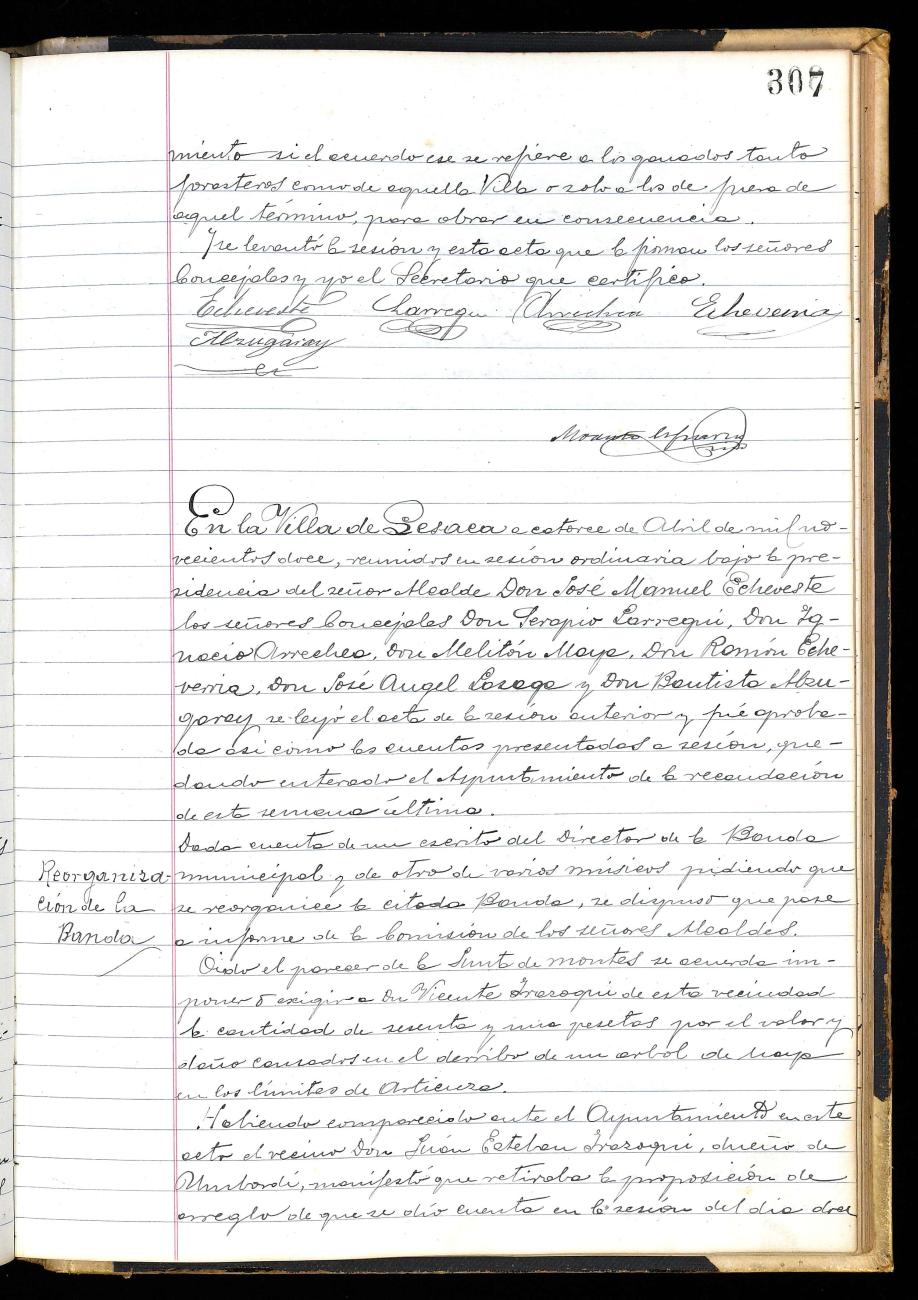 307
miento si el acuerdo ese se refiere a los ganados tanto
forasteros como de aquella Villa o solo a los de fuera de
aquel término, para obrar en consecuencia.
Y se levantó la sesión y esta acta que la firman los señores
Concejales y yo el Secretario que certifico.
Echeveste Larregui Arrechea Echeverria
Alzugaray
En la Villa de Lesaca a catorce de Abril de mil no-
vecientos doce, reunidos en sesión ordinaria bajo la pre-
sidencia del señor Alcalde Don José Manuel Echeveste
los señores Concejales Don Serapio Larregui, Don Ig-
nacio Arrechea, Don Melitón Maya, Don Ramón Eche-
verria, Don José Angel Lasaga y Don Bautista Alzu-
garay se leyó el acta de la sesión anterior y fué aproba-
da asi como las cuentas presentadas a sesión, que-
dando enterado el Ayuntamiento de la recaudación
de esta semana última.
Dada cuenta de un escrito del Director de la Banda
Reorganiza-
ción de la
Banda
municipal y de otro de varios músicos pidiendo que
se reorganice la citada Banda, se dispuso que pase
a informe de la Comisión de los señores Alcaldes.
Oido el parecer de la Junta de montes se acuerda im-
poner ó exigir a Dn Vicente Irazoqui de esta vecindad
la cantidad de sesenta y una pesetas por el valor y
daño causados en el derribo de un arbol de haya
en los límites de Articuza.
Habiendo comparecido ante el Ayuntamiento en este
acto el vecino Don Juán Esteban Irazoqui, dueño de
Umbordi, manifestó que retiraba la proposición de
arreglo de que se dio cuenta en la sesión del dia doce